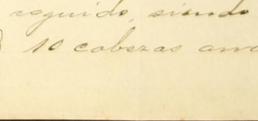 seguido, siendo
10 cabezas